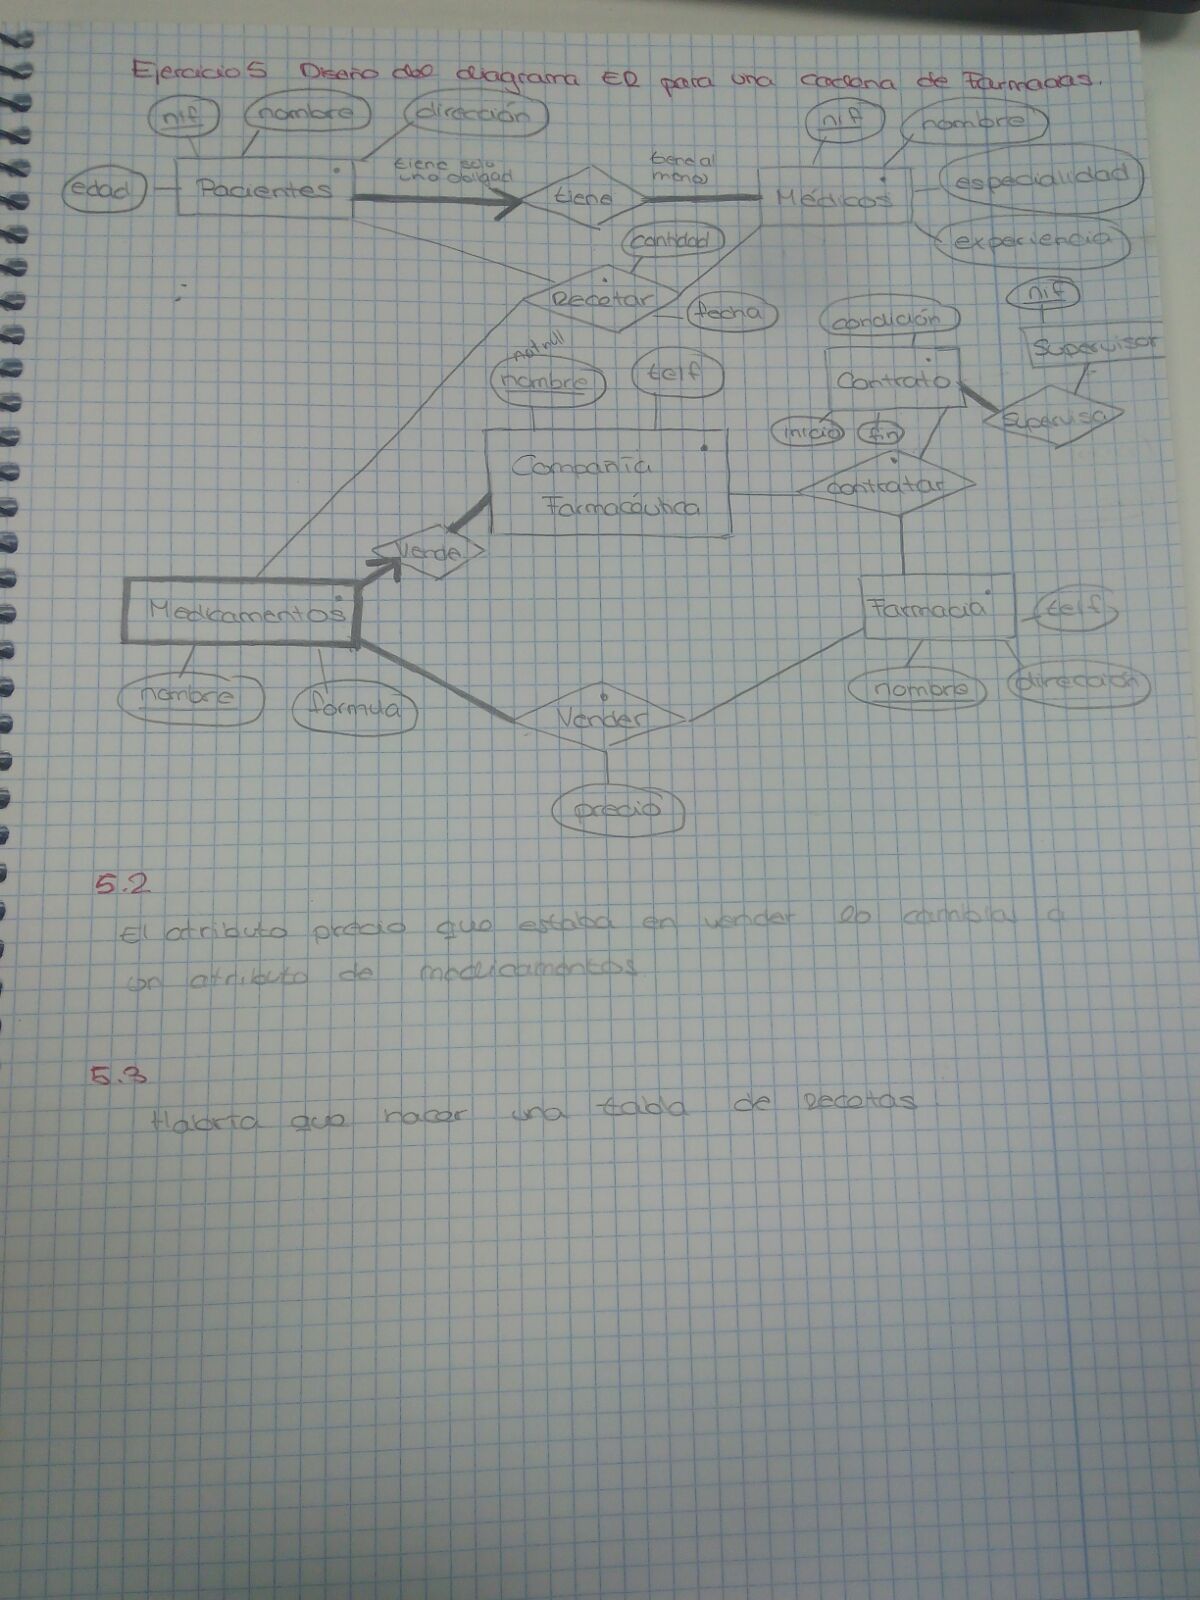 Ejercicio 5 Diseño del diagrama ER para una cadena de Farmacias.
nif nombre dirección nif nombre
edad Pacientes tiene solo uno obligad tiene tiene al menos Médicos especialidad
experiencia
cantidad
Recetar fecha condición nif
Supervisor
not null
nombre telf Contrato
inicio fin Supervisa
Compañía
Farmacéutica contratar
Vende
Medicamentos Farmacia telf
nombre formula nombre dirección
Vender
precio
5.2
El atributo precio que estaba en vender lo cambia a
un atributo de medicamentos
5.3
Habría que hacer una tabla de Recetas